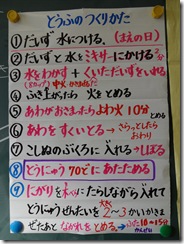 とうふのつくりかた
① だいず 水につける。(まえの日)
② だいずと水をミキサーにかける2分
③ 水をわかす + くいただいずをいれる
中火
④ あわがおさまったらよわ火10分
とめる
⑥ あわをすくいとる → さらっとしたら
おわり
⑦ こしぬのぶくろに入れて→しぼる
⑧ とうにゅう 70どにあたためる
⑨ にがりを水に たらしながら入れて
とうにゅうぜんたいを 大きく 2〜3かいかきまぜ
ぜたあと ながれをとめる。 10〜15分